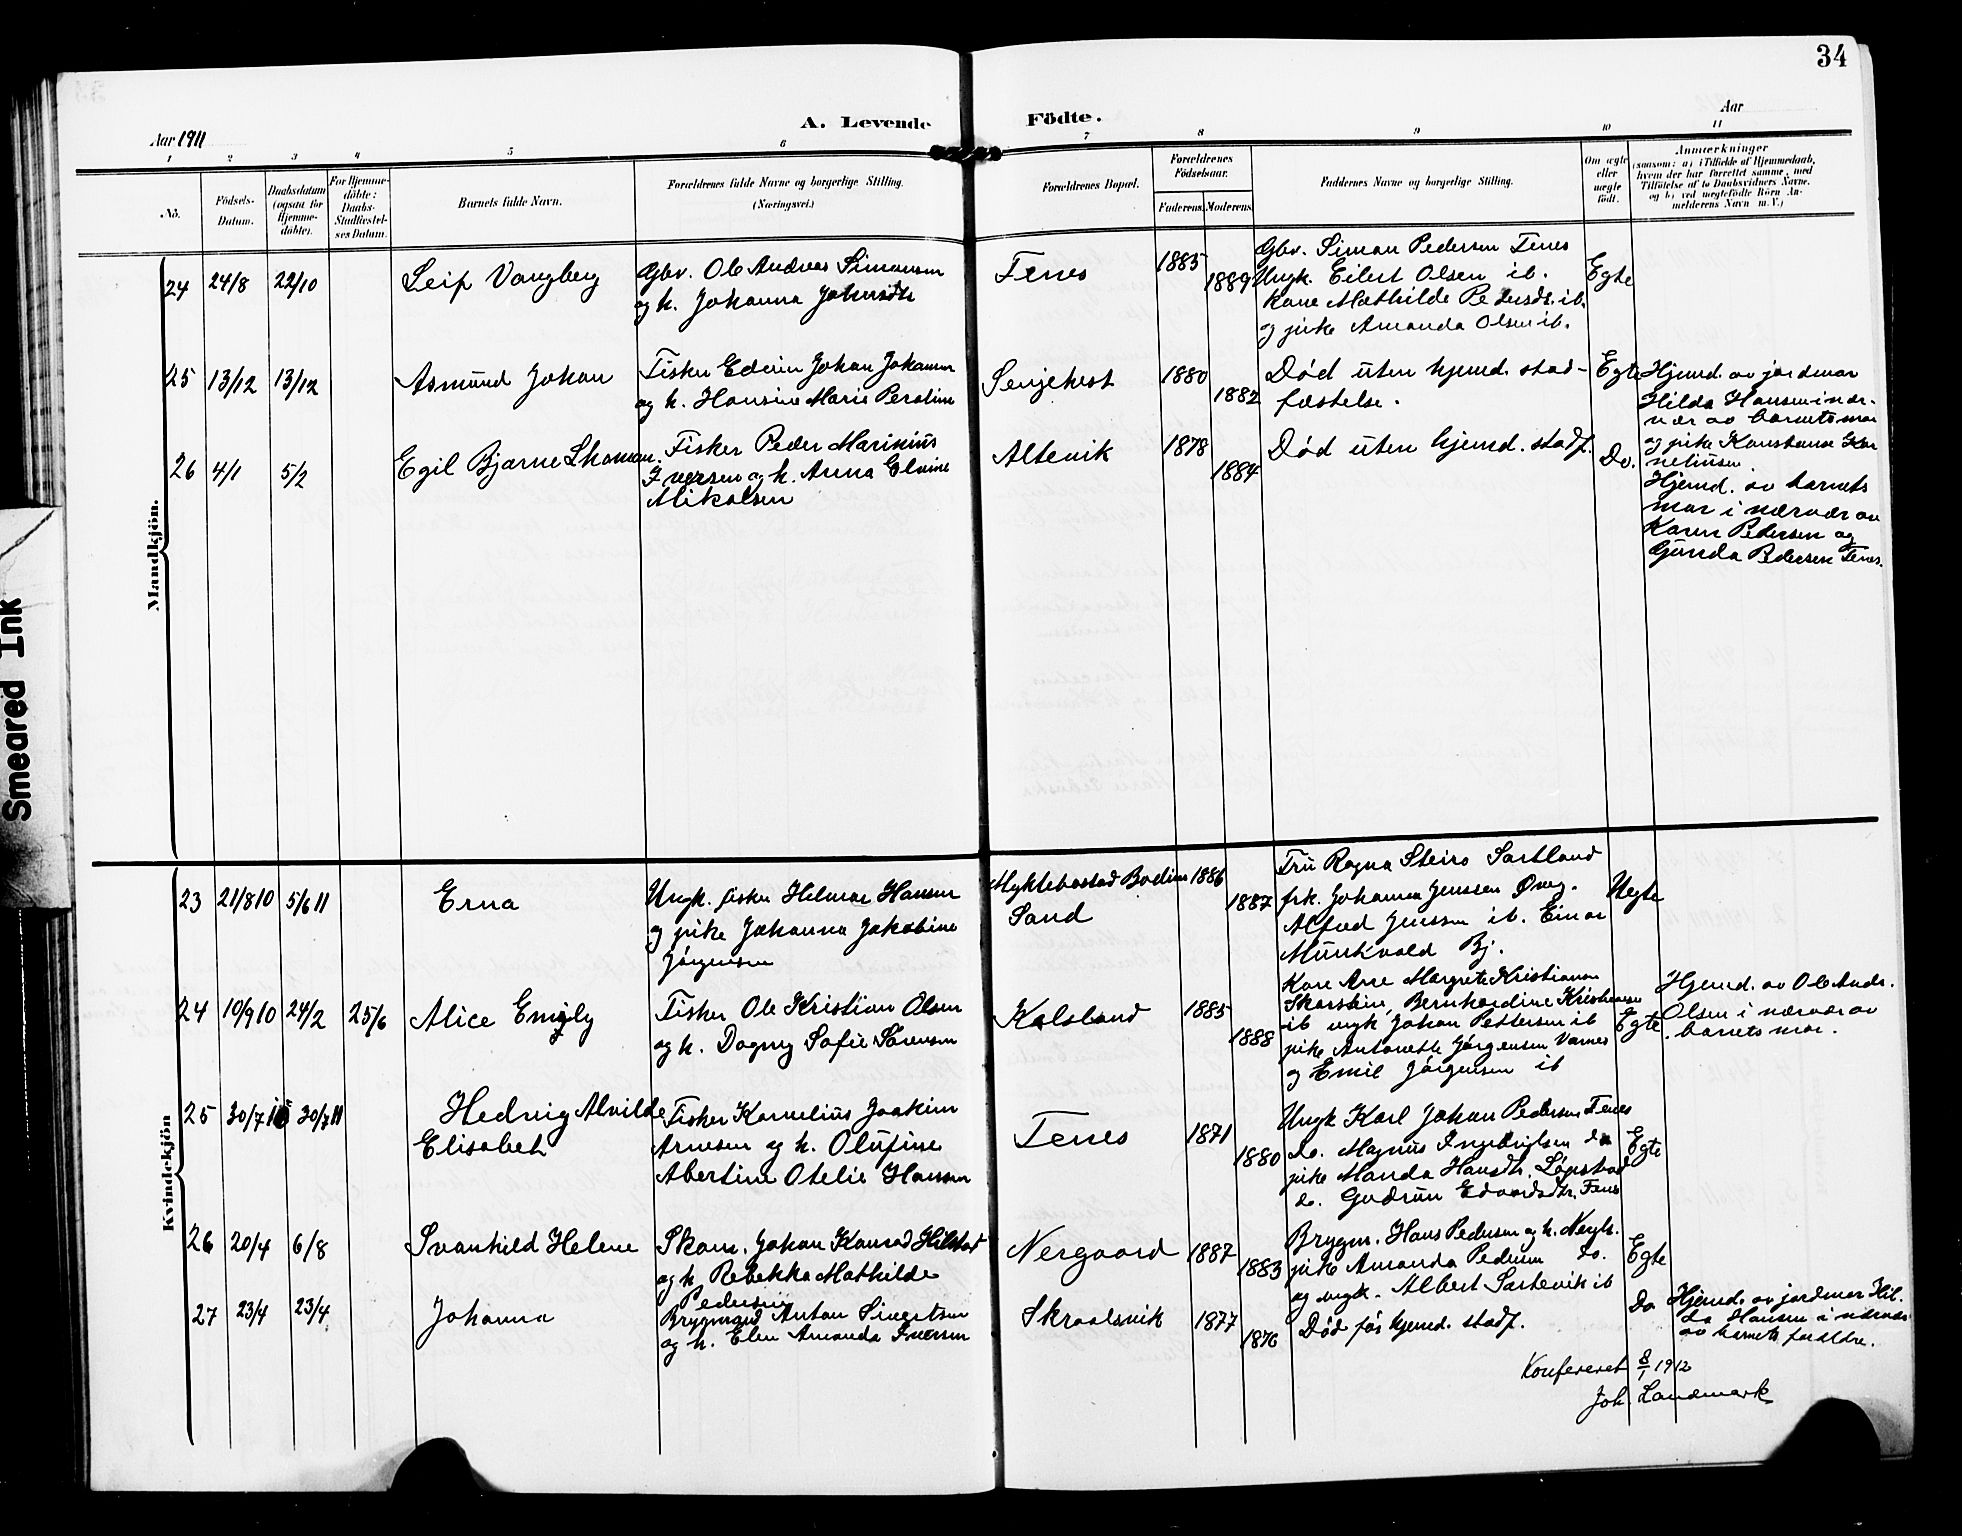 34
A. Levende Födte.
Aar 1911
Aar
1 2 3 4 5 6 7 8 9 10 11
No.
Födsels-
Datum.
Daabsdatum
(ogsaa for
Hjemme-
döbte).
For Hjemme-
döbte:
Daabs-
Stadfæstel-
ses Datum.
Barnets fulde Navn.
Forældrenes fulde Navne og borgerlige Stilling.
(Næringsvei.)
Forældrenes Bopæl.
Forældrenes
Födselsaar.
Faderens. Moderens.
Faddernes Navne og borgerlige Stilling.
Om ægte
eller
uægte
födt.
Anmærkninger
(saasom: a) i Tilfælde af Hjemmedaab,
hvem der har forrettet samme, med
Tilföielse af to Daabsvidners Navne,
og b) ved uægtefödte Börn An-
melderens Navn m. V.)
Mandkjön.
24 24/8 22/10
Leif Vangberg
Gbr. Ole Andreas Simonsen
og h. Johanna Johnsdtr
Tenes
1885
1889
Gbr. Simon Pedersen Tenes
Ungk. Eilert Olsen ib.
Kone Mathilde Pedersdtr. ib.
og pike Amanda Olsen ib.
Egte
25 13/12 13/12
Asmund Johan
Fisker Edvin Johan Johansen
og h. Hansine Marie Peroline
Senjehest
1880
1882
Død uten hjemd. stad-
fæstelse.
Egte
Hjemd. av jordmor
Hilda Hansen i nær-
vær av barnets mor
og pike Konstanse Kor
neliusen.
26 4/1 5/2
Egil Bjarne Thoman.
Fisker Peder Marinius
Iversen og h. Anna Elvine
Mikalsen
Altevik
1878
1884
Død uten hjemd. stadf.
Do.
Hjemd. av barnets
mor i nærvær av
Karen Pedersen og
Gunda Pedersen Tenes.
Kvindekjön
23 21/8 10 5/6 11
Erna
Ungk. fisker Hilmar Hansen
og pike Johanna Jakobine
Jörgensen
Myklebostad Bodin
Sand
1886
1887
Fru Ragna Steiro Sartland
frk. Johanna Jenssen Øveg.
Alfred Jenssen ib. Einar
Munkvold Bj.
Uegte
24 10/9 10 24/2 25/6
Alice Emily
Fisker Ole Kristian Olsen
og h. Dagny Sofie Sörensen
Kalsland
1885
1888
Kone Ane Margrete Kristiansen
Skarstein, Bernhardine Kristiansen
ib ungk Johan Pettersen ib
pike Antonette Jörgensen Vornes
og Emil Jörgensen ib
Egte
Hjemd. av Ole Andr.
Olsen i nærvær av
barnets mor.
25 30/7 10 30/7 11
Hedvig Alvilde
Elisabet
Fisker Kornelius Joakim
Arnesen og h. Olufine
Abertine Otelie Hansen
Tenes
1871
1880
Ungk Karl Johan Pedersen Tenes
do. Magnus Ingebrigtsen do
pike Manda Hansdtr. Løgstad
do. Gudrun Edvardsdtr. Tenes
Egte
26 20/4 6/8
Svanhild Helene
Skom. Johan Konrad Hilstad
og h. Rebekka Mathilde
Pedersen
Nergaard
1887
1883
Brygm. Hans Pedersen og h. Nergh.
pike Amanda Pedersen do.
og ungk. Albert Sartevik ib
Egte
27 23/4 23/4
Johanna
Brygmand Anton Sivertsen
og h. Elen Amanda Iversen
Skroalsvik
1877
1876
Død før hjemd. stadf.
Do
Hjemd. av jordmor Hil-
da Hansen i nærvær
av barnets forældre.
Konfereret 8/1 1912
Joh. Landmark
Smeared Ink